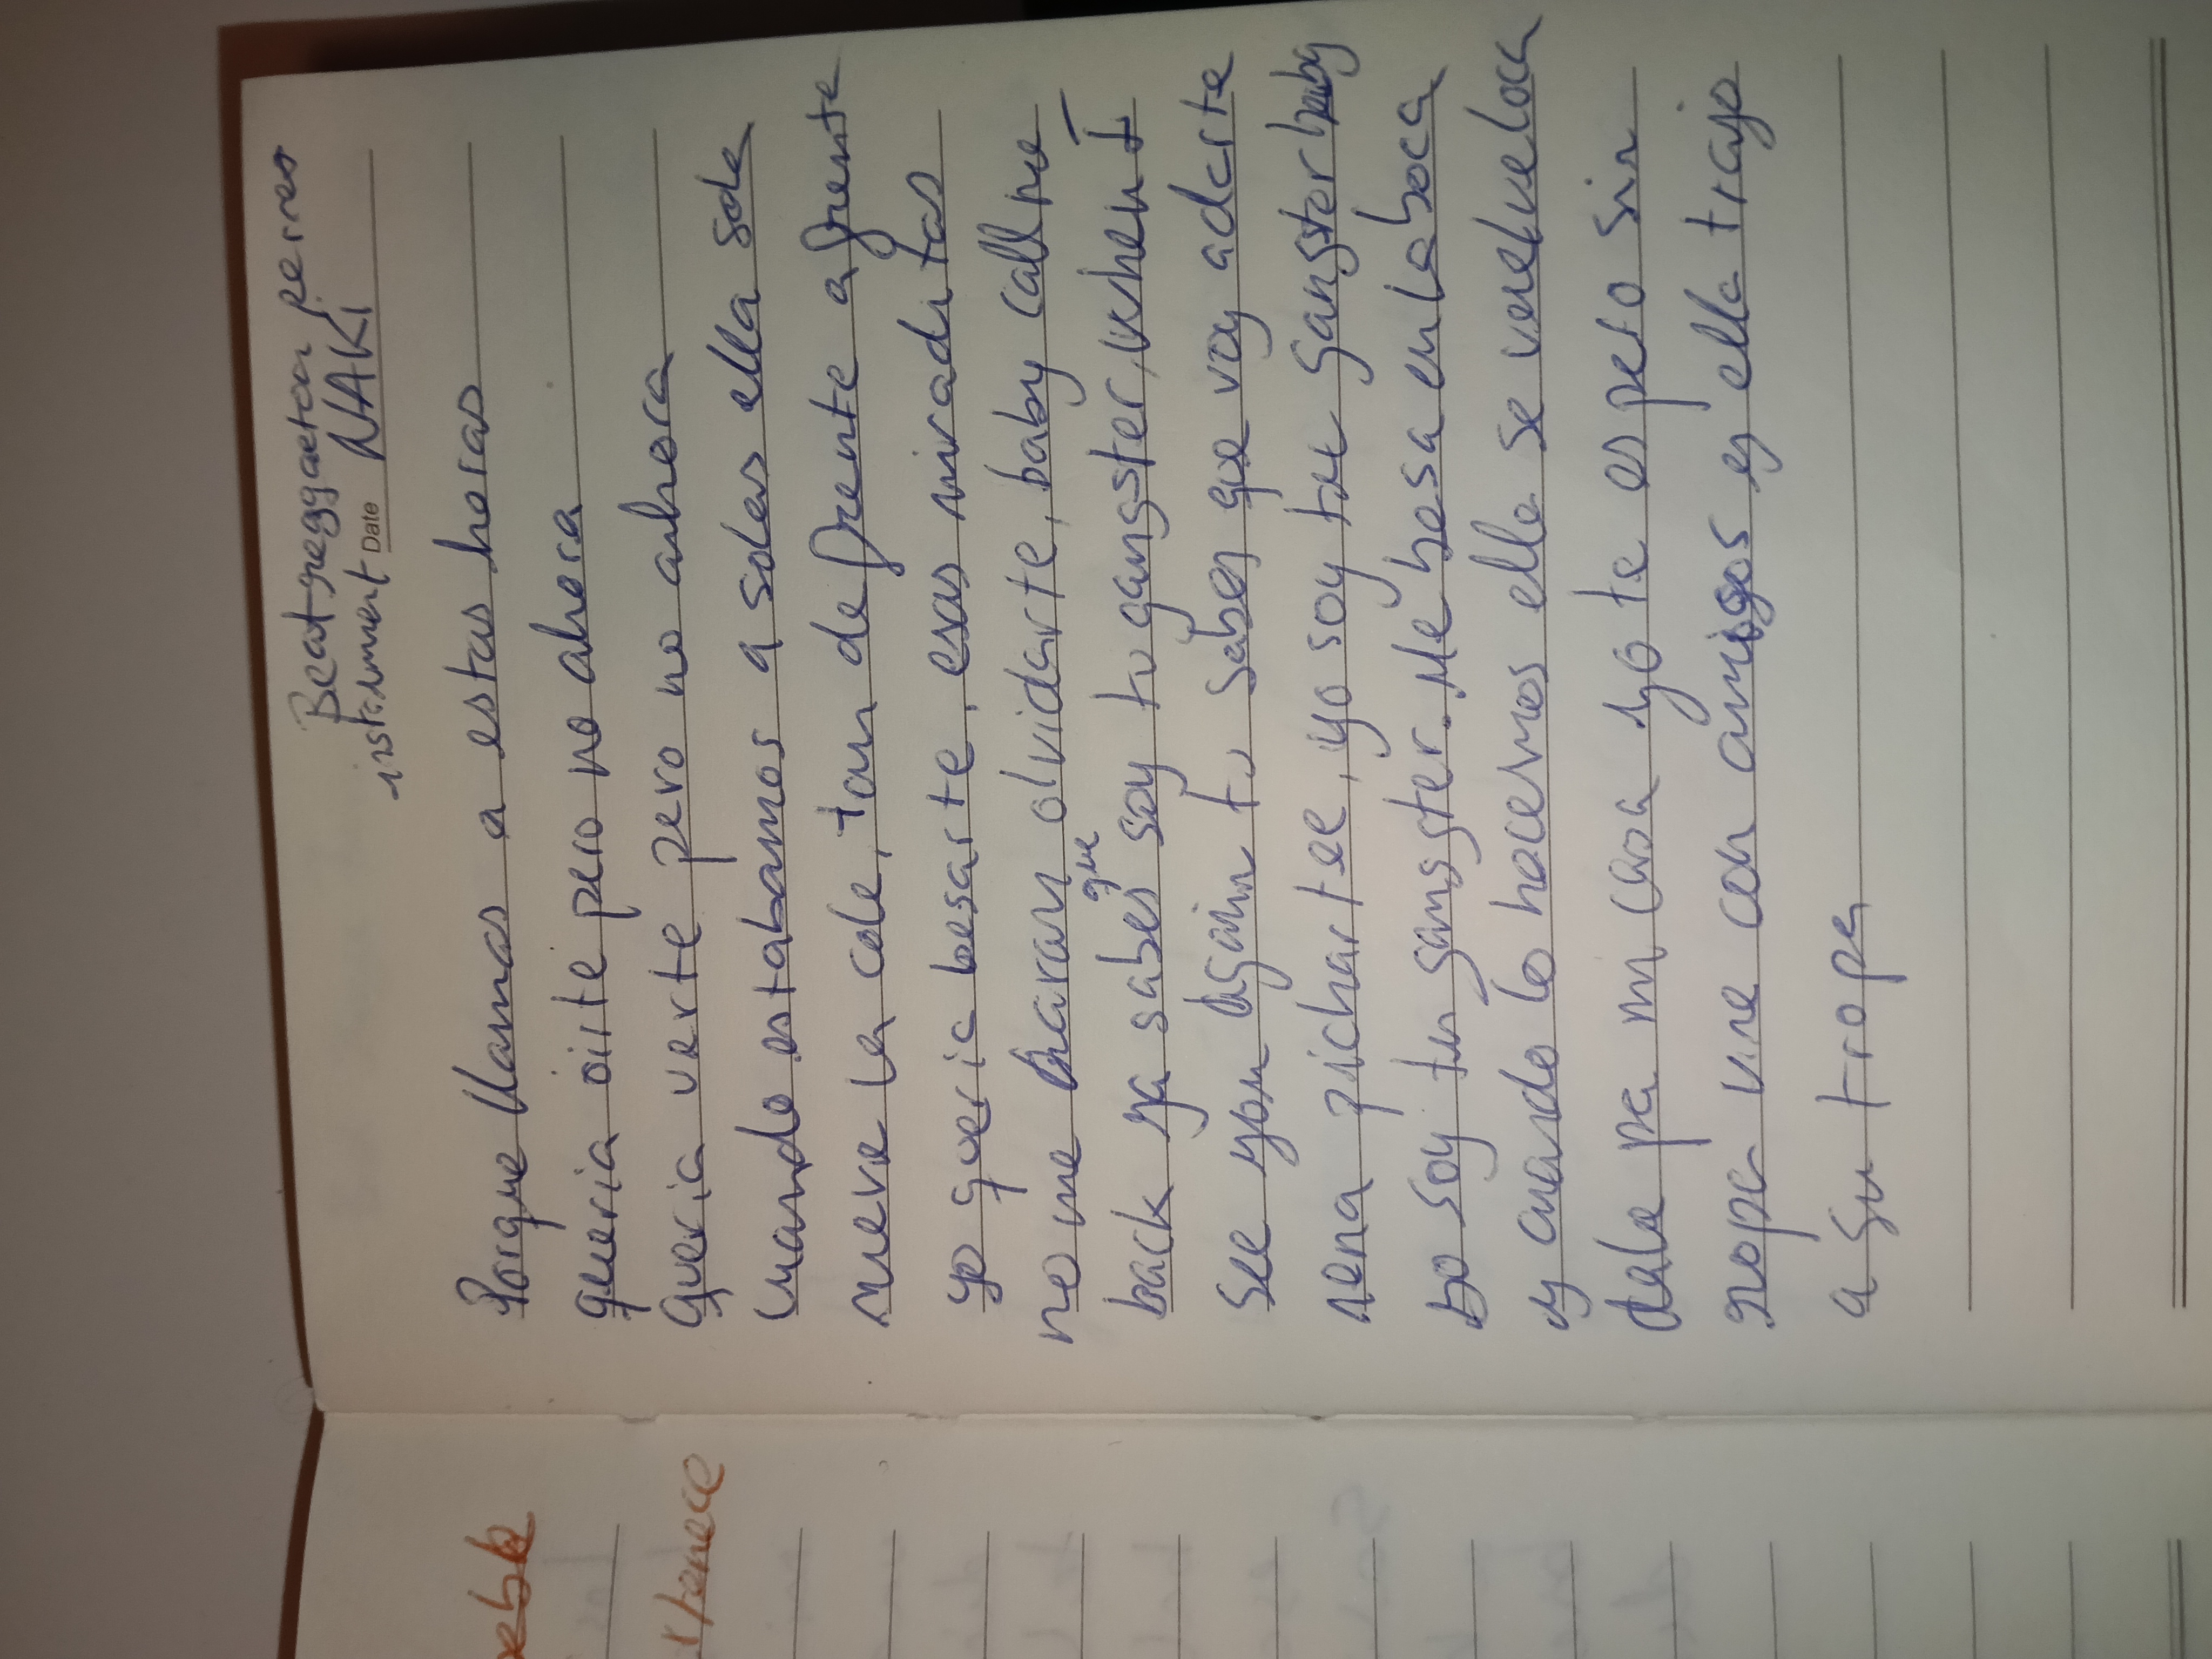 Beat reggaeton perreo
instrument Date NAKI
Porque llamas a estas horas
queria oirte pero no ahora
Queria verte pero no ahora
Cuando estabamos a solas ella sola
mueve la cola, tan de frente a frente
yo queria besarte, esas miraditas
no me haran olvidarte, baby call me
back ya sabes que soy tu gangster, when I
see you again tu sabes que voy a darte
nena picharte, yo soy tu gangster baby
yo soy tu gangster. Me besa en la boca
y cuando lo hacemos ella se vuelve loca
dale pa mi casa yo te espero sin
ropa vine con amigos y ella trajo
a su tropa